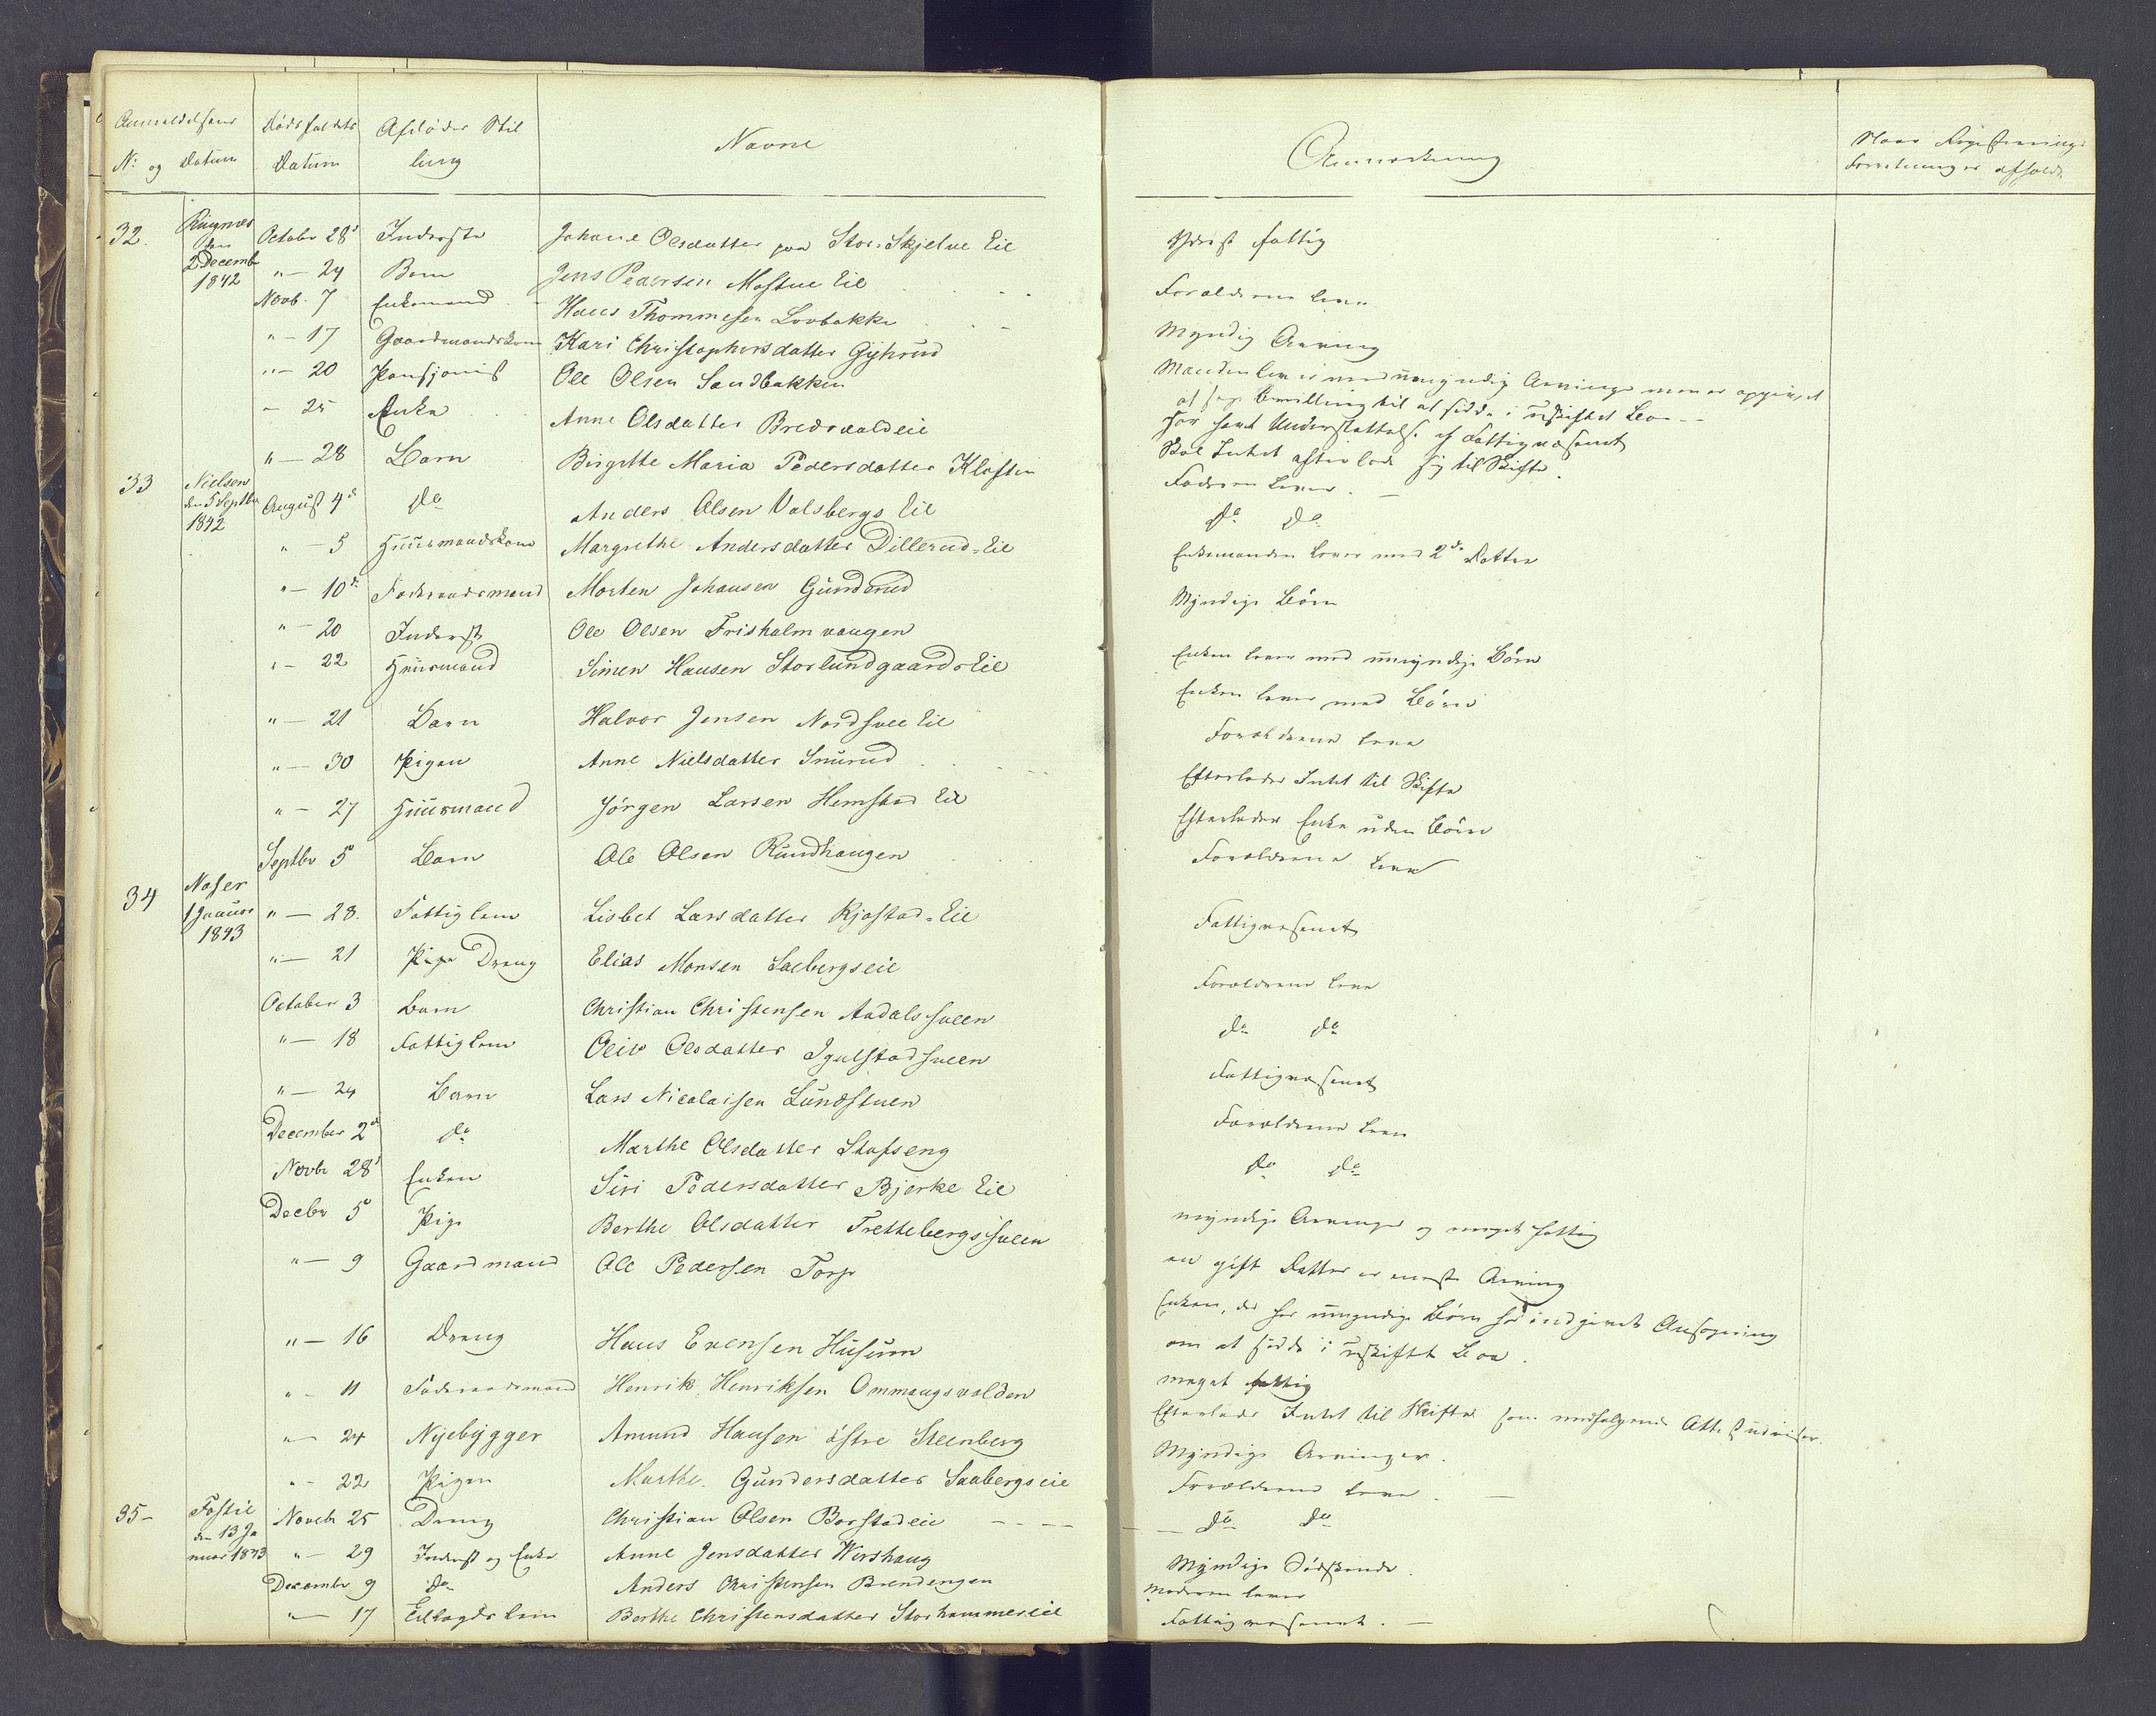 Anmeldelsens Dødsfaldets Afdødes Stil Navne Anmærkning Naar Registrerings
No og Datum Datum ling Forretninger afholdt
32. Ringnæs October 28d Inderste Johane Olsdatter paa Stor-Skjelve Eie Yderst fattig
den 2 Decemb 1842 " — 24 Barn Jens Pedersen Mostue Eie Forældrene leve
Novb. 7 Enkemand Hans Thommesen Lovbakke Myndig Arving
" — 17 Gaardmandskone Kari Christophersdatter Gyhrud Manden lever med umyndig Arvinge men er opgivet
at søge Bevilling til at sidde i uskiftet Boe
" — 20 Pensjonist Ole Olsen Sandbakken har havt Understøttelse af Fattigvæsenet
— 25 Enke Anne Olsdatter Bredvoldeie Skal Intet efterlade sig til Skifte.
" — 28 Barn Birgitte Maria Pedersdatter Klosten Faderen lever. —
33 Nielsen den 5 Septbr 1842 August 4d do Anders Olsen Valsbergs Eie do do
" — 5 Huusmandskone Margrethe Andersdatter Dillerud-Eie Enkemanden lever med 2de Døttre
" — 10d Føderaadsmand Morten Johansen Gunderud Myndige Børn
" — 20 Inderst Ole Olsen Frisholmhaugen Enken lever med umyndige Børn
" — 22 Huusmand Simen Hansen Storlundgaards Eie Enken lever med Børn
" — 21 Barn Halvor Jensen Nordsvee Eie Forældrene leve
" — 30 Pigen Anne Nielsdatter Snurud Efterlader Intet til Skifte
" — 27 Huusmand Jörgen Larsen Hemstad Eie Efterlader Enke uden Børn
Septbr 5 Barn Ole Olsen Rundhaugen Forældrene leve
34 Noser 1 Januar 1843 " — 28. Fattiglem Lisbet Larsdatter Kjostad-Eie Fattigvæsenet
" — 21 Pige Dreng Elias Monsen Saebergseie Forældrene leve
October 3 Barn Christian Christensen Aadalssveen do do
" — 18 Fattiglem Oliv Olsdatter Igelstadsveen Fattigvæsenet
" — 24 Barn Lars Nicolaisen Lundstuen Forældrene leve
December 2d do Marthe Olsdatter Stafseng do do
Novbr 28d Enken Siri Pedersdatter Bjerke Eie myndige Arvinger og meget fattig
Decbr 5 Pige Berthe Olsdatter Frettebergssveen en gift Datter er eneste Arving
" — 9 Gaardmand Ole Pedersen Torp Enken, der har umyndige Børn har indgivet Ansøgning
om at sidde i uskiftet Boe.
" — 16 Dreng Hans Evensen Husum meget fattig
" — 11 Føderaadsmand Henrik Henriksen Ommangsvolden Efterlader Intet til Skifte som medfølgende Attest udviser.
" — 24 Nyebygger Amund Hansen östre Steenberg Myndige Arvinger.
" — 22 Pigen Marthe Gundersdatter Saabergseie Forældrene leve. —
35 — Fostie den 13 Januar 1843 Novebr 25 Dreng Christian Olsen Borstadeie — do do
" — 29 Inderst og Enke Anne Jensdatter Wershaug Myndige Sødskende.
Decembr 9 do Anders Christensen Brendengen Moderen lever
" — 17 Eilagds lem Berthe Christensdatter Storhammereie Fattigvæsenet. —